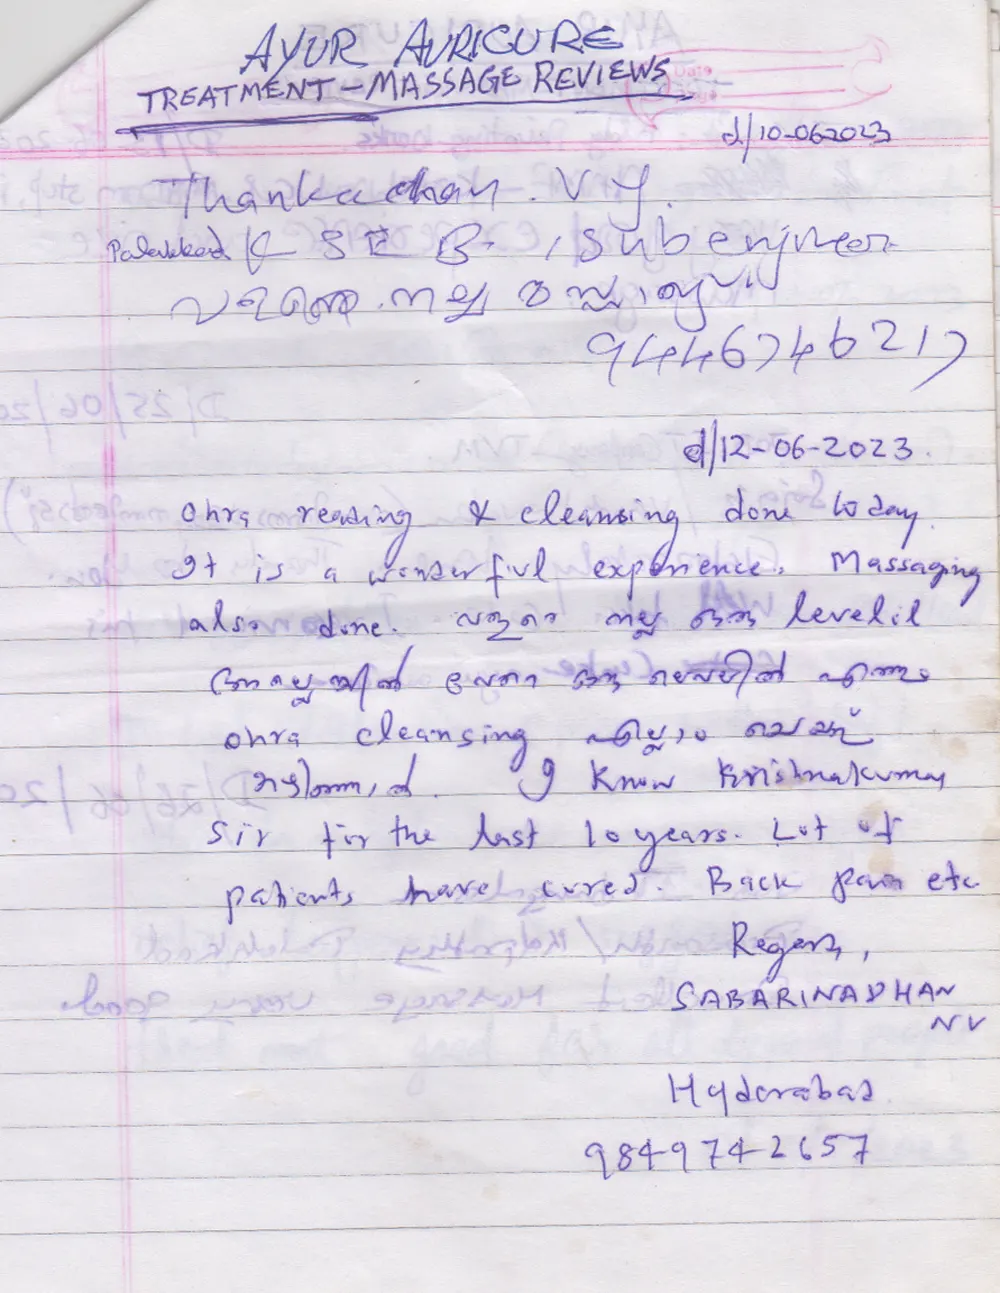 AYUR AURICURE
TREATMENT - MASSAGE REVIEWS
d/10-062023
Thankachan. V. Y.
Palakkad K S E B, Sub enjineer
വളരെ നല്ല
9446746217
d/12-06-2023.
ohra reading & cleansing done today.
It is a wonderful experience. Massaging
also done. വളരെ നല്ല ഒരു levelil
വേറെ ഒരു ലെവലിൽ എന്നും
ohra cleansing എല്ലാം ചെയ്ത്
I know Krishnakumar
Sir for the last 10 years. Lot of
patients have cured. Back pain etc
Regards,
SABARINADHAN
NV
Hyderabad
9849742657